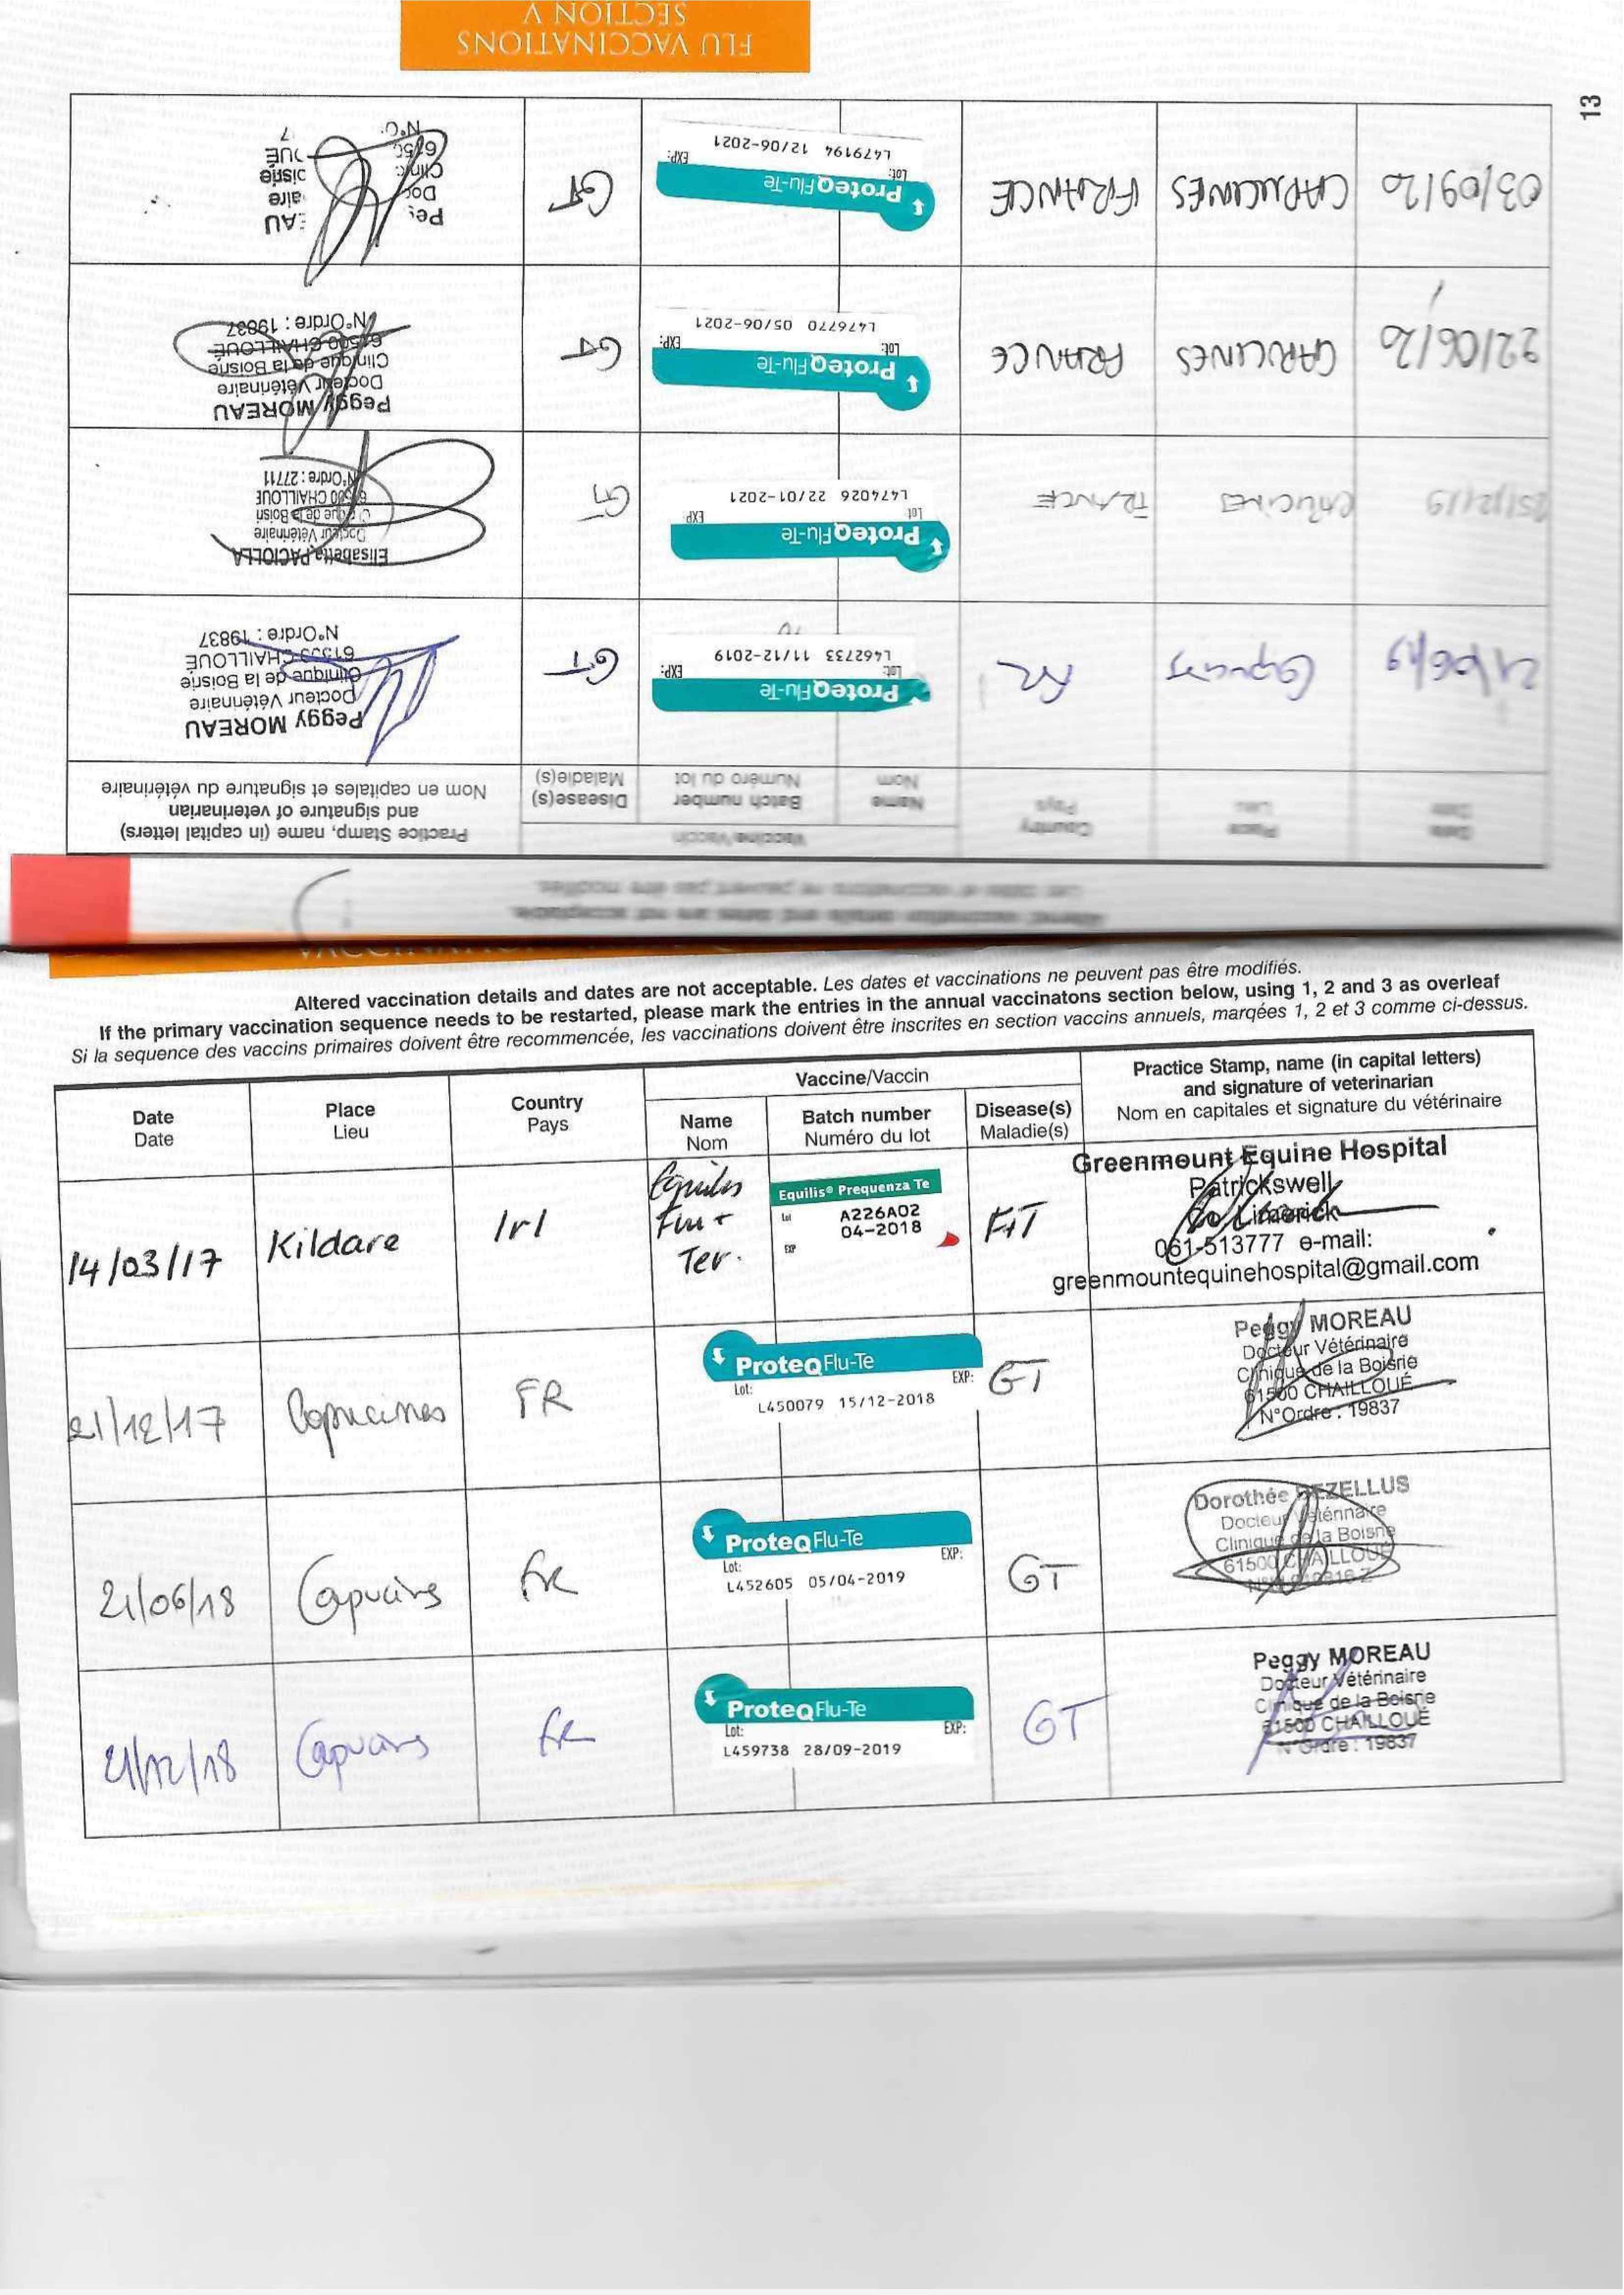 VACCINATION
Altered vaccination details and dates are not acceptable. Les dates et vaccinations ne peuvent pas être modifiés.
If the primary vaccination sequence needs to be restarted, please mark the entries in the annual vaccinatons section below, using 1, 2 and 3 as overleaf
Si la sequence des vaccins primaires doivent être recommencée, les vaccinations doivent être inscrites en section vaccins annuels, marqées 1, 2 et 3 comme ci-dessus.
Date
Date
Place
Lieu
Country
Pays
Vaccine/Vaccin
Name
Nom
Batch number
Numéro du lot
Disease(s)
Maladie(s)
Practice Stamp, name (in capital letters)
and signature of veterinarian
Nom en capitales et signature du vétérinaire
14/03/17
Kildare
Irl
Equilis
Flu +
Ter.
Equilis® Prequenza Te
Lot
A226A02
04-2018
EXP
Greenmount Equine Hospital
Patrickswell
Co Limerick
061-513777 e-mail:
greenmountequinehospital@gmail.com
21/12/17
Capucines
FR
ProteqFlu-Te
Lot: EXP:
L450079 15/12-2018
GT
Peggy MOREAU
Docteur Vétérinaire
Clinique de la Boisrie
61500 CHAILLOUÉ
N°Ordre : 19837
21/06/18
FR
ProteqFlu-Te
Lot: EXP:
L452605 05/04-2019
GT
Dorothée
Docteur Vétérinaire
Clinique de la Boisne
61500 CHAILLOUÉ
21/12/18
FR
ProteqFlu-Te
Lot: EXP:
L459738 28/09-2019
GT
Peggy MOREAU
Docteur Vétérinaire
Clinique de la Boisne
61500 CHAILLOUÉ
N°Ordre : 19837
Altered vaccination details and dates are not acceptable.
Les dates et vaccinations ne peuvent pas être modifiés.
Date
Date
Place
Lieu
Country
Pays
Vaccine/Vaccin
Name
Nom
Batch number
Numéro du lot
Disease(s)
Maladie(s)
Practice Stamp, name (in capital letters)
and signature of veterinarian
Nom en capitales et signature du vétérinaire
21/06/19
FR
ProteqFlu-Te
Lot: EXP:
L462733 11/12-2019
GT
Peggy MOREAU
Docteur Vétérinaire
Clinique de la Boisrie
61500 CHAILLOUÉ
N°Ordre : 19837
FRANCE
ProteqFlu-Te
Lot EXP
L474026 22/01-2021
GT
Elisabetta PACIOLLA
Docteur Vétérinaire
Clinique de la Boisri
61500 CHAILLOUE
N°Ordre : 27711
22/06/20
CAPUCINES
FRANCE
ProteqFlu-Te
Lot: EXP:
L476770 05/06-2021
GT
Peggy MOREAU
Docteur Vétérinaire
Clinique de la Boisrie
61500 CHAILLOUÉ
N°Ordre : 19837
03/09/20
CAPUCINES
FRANCE
ProteqFlu-Te
Lot: EXP:
L479194 12/06-2021
GT
FLU VACCINATIONS
SECTION V
13